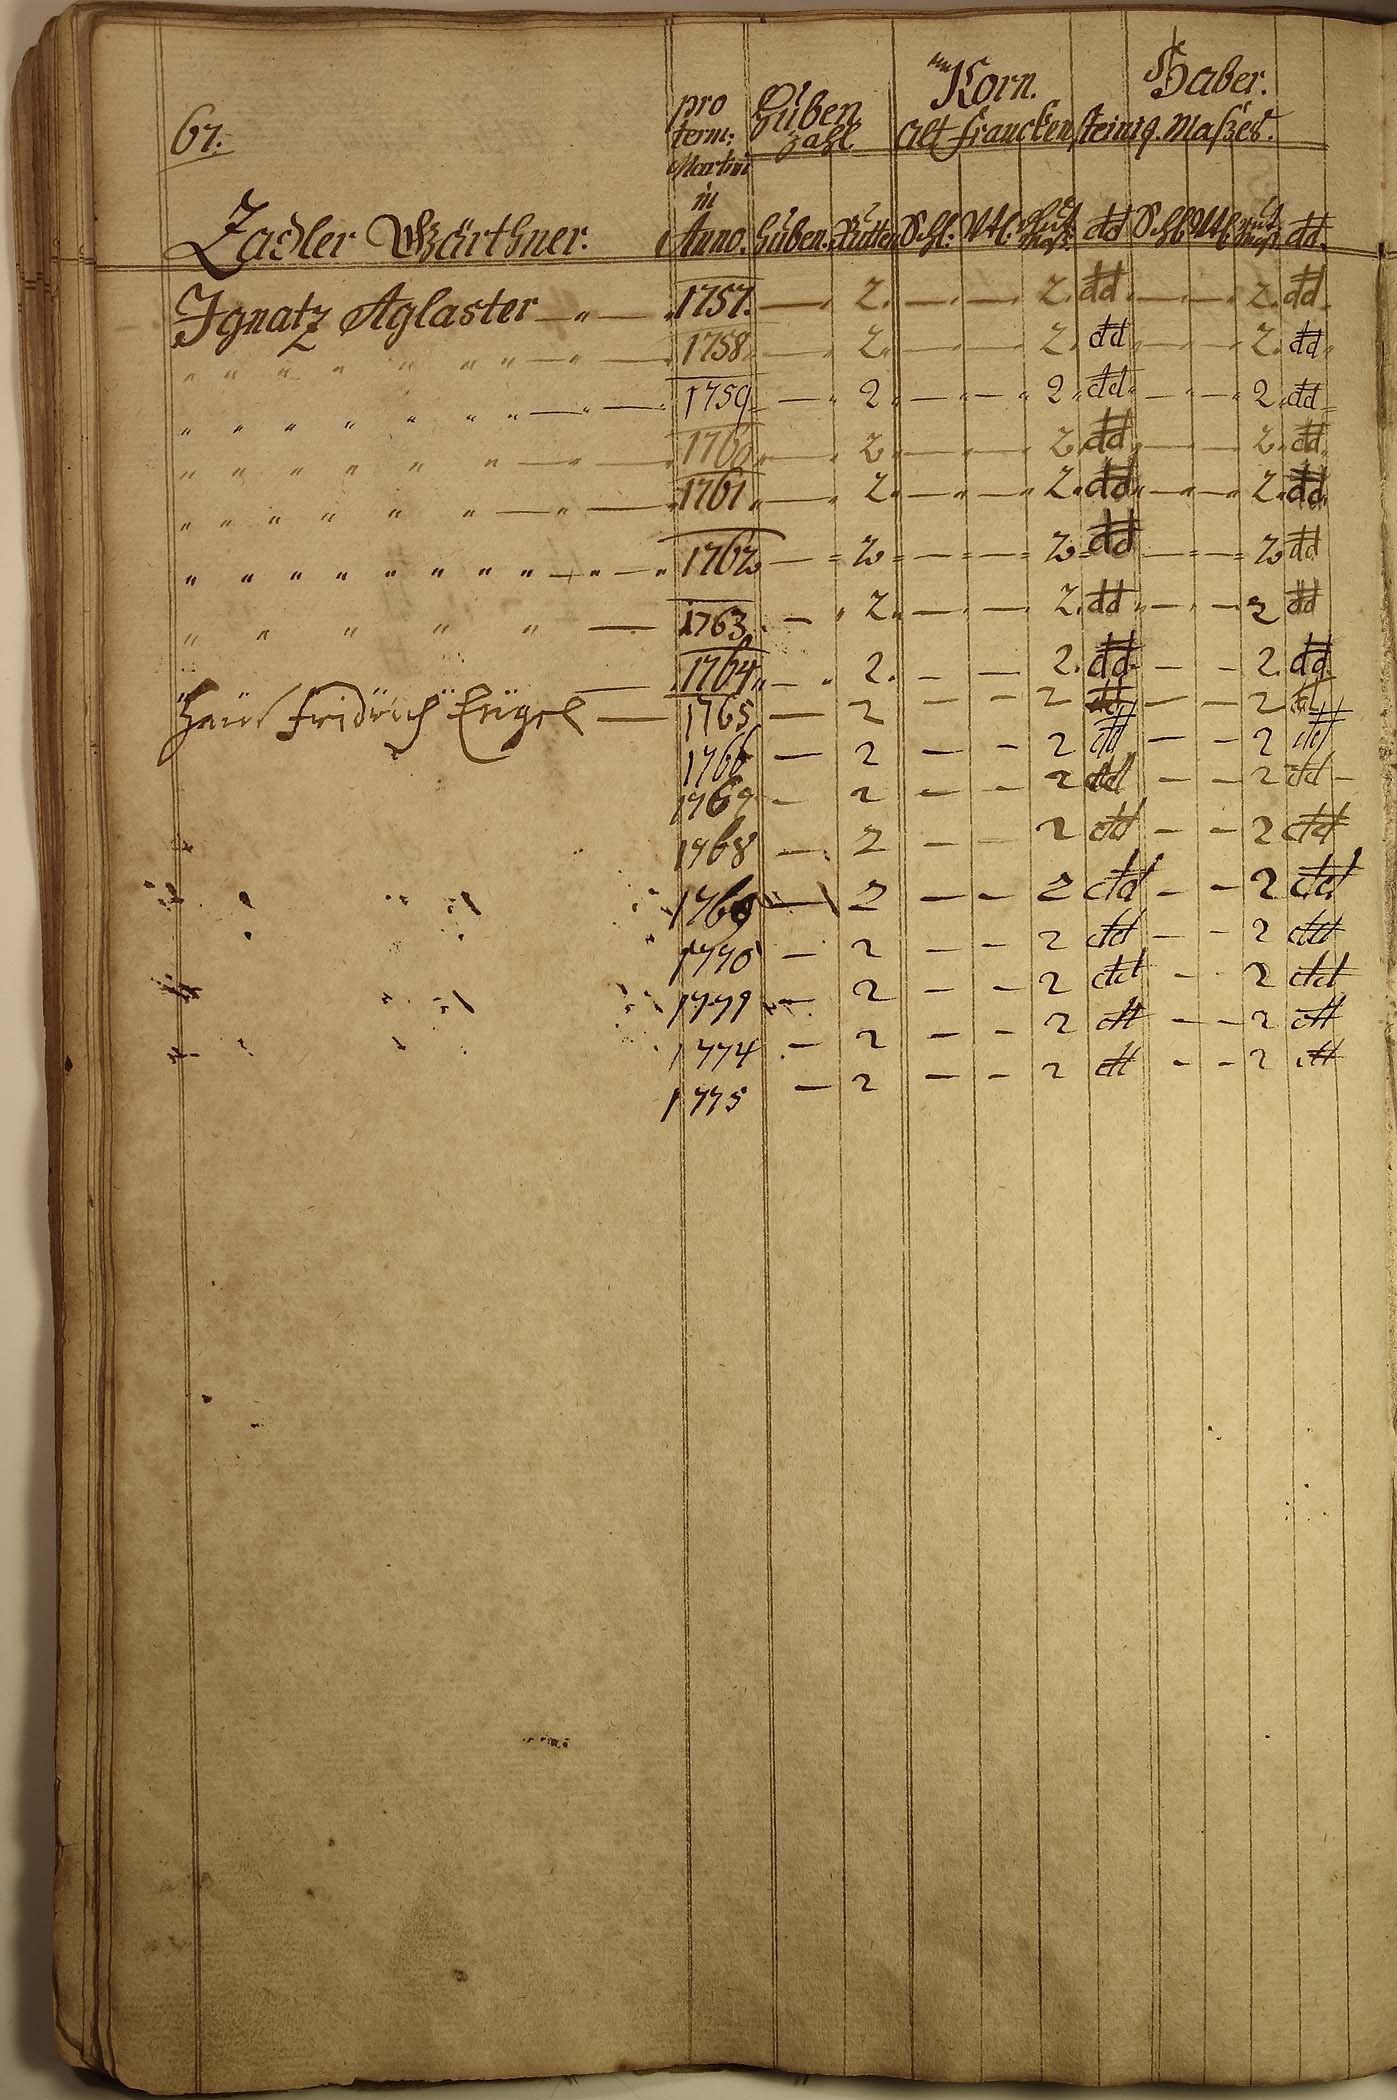 67.
pro term: Martini in Anno.
Huben Zahl
Korn. Haber.
Alt Franckensteinig. Maßes.
Zadler Gärthner.
Huben. Rutten Schl: Vtl. Maß dd Schl. Vtl. Maß dd.
Ignatz Aglaster — " — 1757. — 2. — — 2. dd. — — 2. dd.
" " " " " " " — " — 1758. — 2. — — 2. dd — — 2. dd
" " " " " " " — " — 1759 — 2 — — 2 dd — — 2 dd
" " " " " " — " — 1760 — 2. — — 2. dd — — 2. dd
" " " " " " — " — 1761 — 2. — — 2. dd — — 2. dd
" " " " " " " " " — " — " 1762 — 2 — — 2 dd — — 2 dd
" " " " " — 1763 — 2. — — 2. dd — — 2 dd
— 1764 — 2. — — 2. dd — — 2. dd
Hanß Fridrich Engel — 1765 — 2 — — 2 dd — — 2 dd
1766 — 2 — — 2 dd — — 2 dd
1767 — 2 — — 2 dd — — 2 dd —
1768 — 2 — — 2 dd — — 2 dd
1769 — 2 — — 2 dd — — 2 dd
1770 — 2 — — 2 dd — — 2 dd
1771 — 2 — — 2 dd — — 2 dd
1774 — 2 — — 2 dd — — 2 dd
1775 — 2 — — 2 dd — — 2 dd